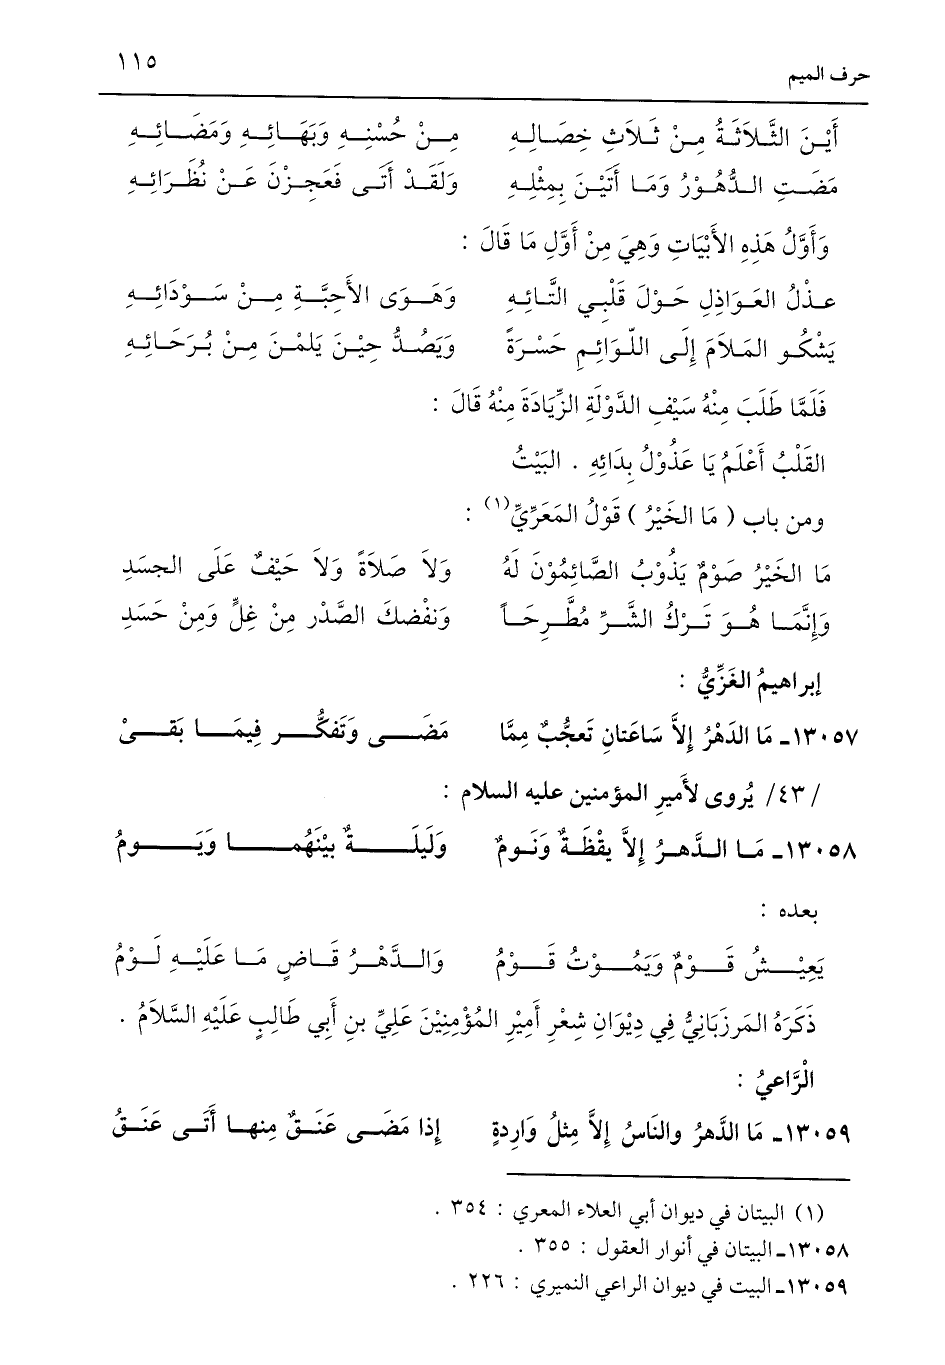 حرف الميم ١١٥
أَيْنَ الثَّلاَثَةُ مِنْ ثَلاَثِ خِصَالِهِ مِنْ حُسْنِهِ وَبَهَائِهِ وَمَضَائِهِ
مَضَتِ الدُّهُوْرُ وَمَا أَتَيْنَ بِمِثْلِهِ وَلَقَدْ أَتَى فَعَجِزْنَ عَنْ نُظَرَائِهِ
وَأَوَّلُ هَذِهِ الأَبْيَاتِ وَهِيَ مِنْ أَوَّلِ مَا قَالَ :
عذْلُ العَوَاذِلِ حَوْلَ قَلْبِي التَّائِهِ وَهَوَى الأَحِبَّةِ مِنْ سَوْدَائِهِ
يَشْكُو المَلاَمَ إِلَى اللَّوَائِمِ حَسْرَةً وَيَصُدُّ حِيْنَ يَلمْنَ مِنْ بُرَحَائِهِ
فَلَمَّا طَلَبَ مِنْهُ سَيْفِ الدَّوْلَةِ الزِّيَادَةَ مِنْهُ قَالَ :
القَلْبُ أَعْلَمُ يَا عَذُوْلُ بِدَائِهِ . البَيْتُ
ومن باب ( مَا الخَيْرُ ) قَوْلُ المَعَرِّيِّ(١) :
مَا الخَيْرُ صَوْمٌ يَذُوْبُ الصَّائِمُوْنَ لَهُ وَلاَ صَلاَةً وَلاَ حَيْفٌ عَلَى الجسَدِ
وَإِنَّمَا هُوَ تَرْكُ الشَّرِّ مُطَّرِحَاً وَنفْضكَ الصَّدْرِ مِنْ غِلٍّ وَمِنْ حَسَدِ
إبراهيمُ الغَزِّيُّ :
١٣٠٥٧ـ مَا الدَهْرُ إِلاَّ سَاعَتانِ تَعجُّبٌ مِمَّا مَضَى وَتَفكُّر فِيمَا بَقىْ
/٤٣/ يُروى لأَميرِ المؤمنين عليه السلام :
١٣٠٥٨ـ مَا الدَّهرُ إِلاَّ يقْظَةٌ وَنَومٌ وَلَيلَةٌ بيْنَهُما وَيَومُ
بعده :
يَعِيْشُ قَوْمٌ وَيَمُوْتُ قَوْمُ وَالدَّهْرُ قَاضٍ مَا عَلَيْهِ لَوْمُ
ذَكَرَهُ المَرزَبَانِيُّ فِي دِيْوَانِ شِعْرِ أَمِيْرِ المُؤْمِنِيْنَ عَلِيِّ بنِ أَبِي طَالِبٍ عَلَيْهِ السَّلاَمُ .
الْرَّاعيُ :
١٣٠٥٩ـ مَا الدَّهرُ والنَاسُ إِلاَّ مِثلُ وَاردةٍ إذا مَضَى عَنَقٌ مِنها أَتَى عَنَقُ
(١) البيتان في ديوان أبي العلاء المعري : ٣٥٤ .
١٣٠٥٨ـ البيتان في أنوار العقول : ٣٥٥ .
١٣٠٥٩ـ البيت في ديوان الراعي النميري : ٢٢٦ .